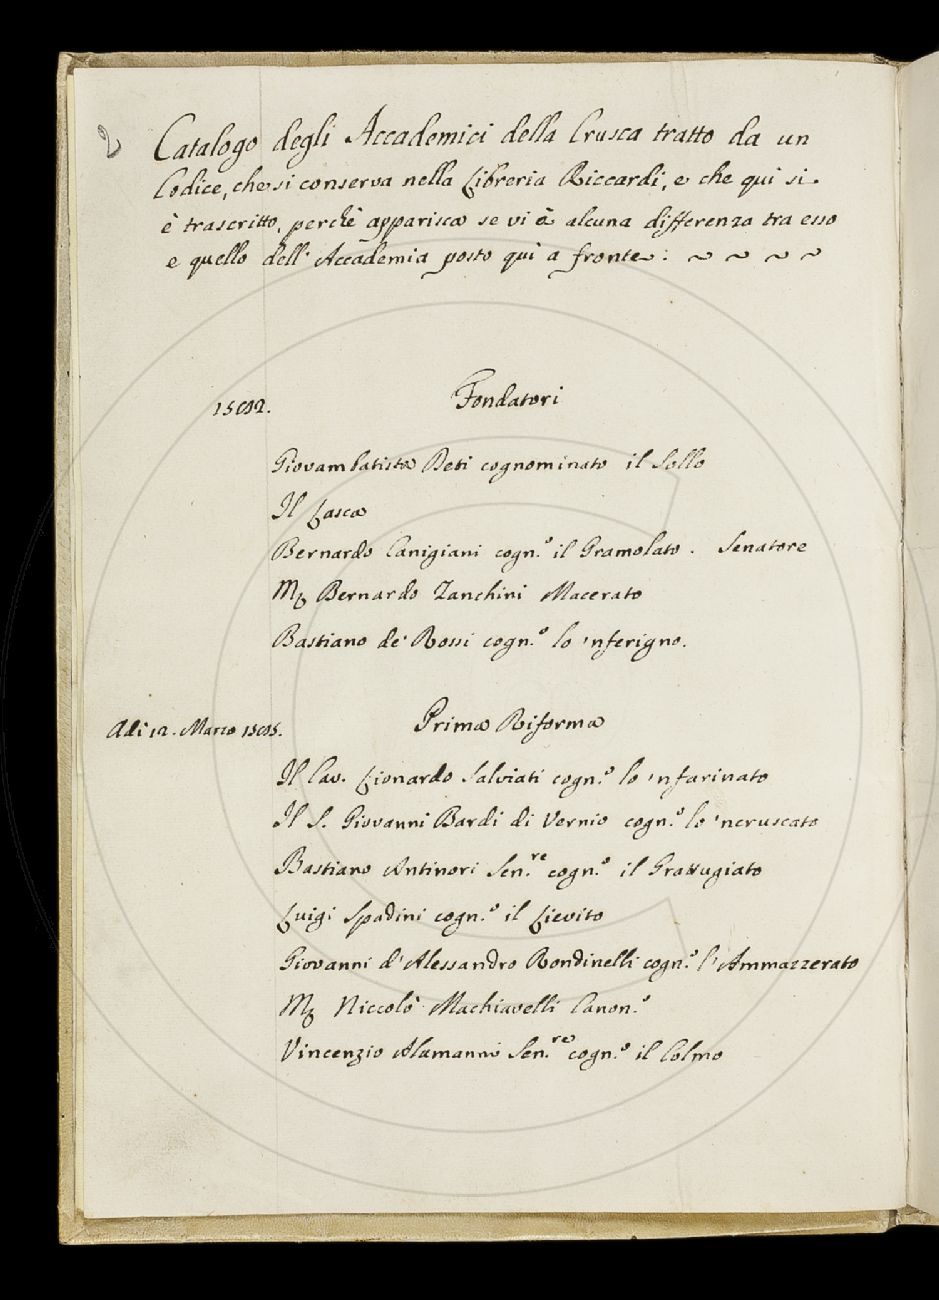 2
Catalogo degli Accademici della Crusca tratto da un
Codice, che si conserva nella Libreria Riccardi, e che qui si
è trascritto, perchè apparisca se vi è alcuna differenza tra esso
e quello dell' Accademia posto quì a fronte: ~ ~ ~ ~
1582. Fondatori
Giovambatista Deti cognominato il Sollo
Il Lasca
Bernardo Canigiani cogn.º il Gramolato. Senatore
M. Bernardo Zanchini Macerato
Bastiano de' Rossi cogn.º lo 'nferigno.
Adi 12. Marzo 1585. Prima Riforma
Il Cav. Lionardo Salviati cogn.º lo 'nfarinato
Il S. Giovanni Bardi di Vernio cogn.º lo 'ncruscato
Bastiano Antinori Sen.re cogn.º il Grattugiato
Luigi Spadini cogn.º il Lievito
Giovanni d'Alessandro Rondinelli cogn.º l'Ammazzerato
M. Niccolò Machiavelli Canon.º
Vincenzio Alamanni Sen.re cogn.º il Colmo